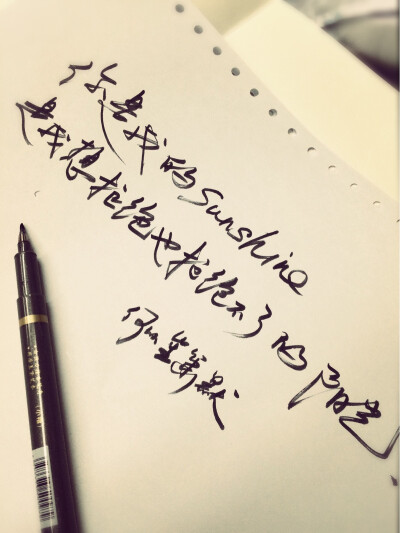 你是我的sunshine
是我想拒绝也拒绝不了的阳光
何以笙箫默